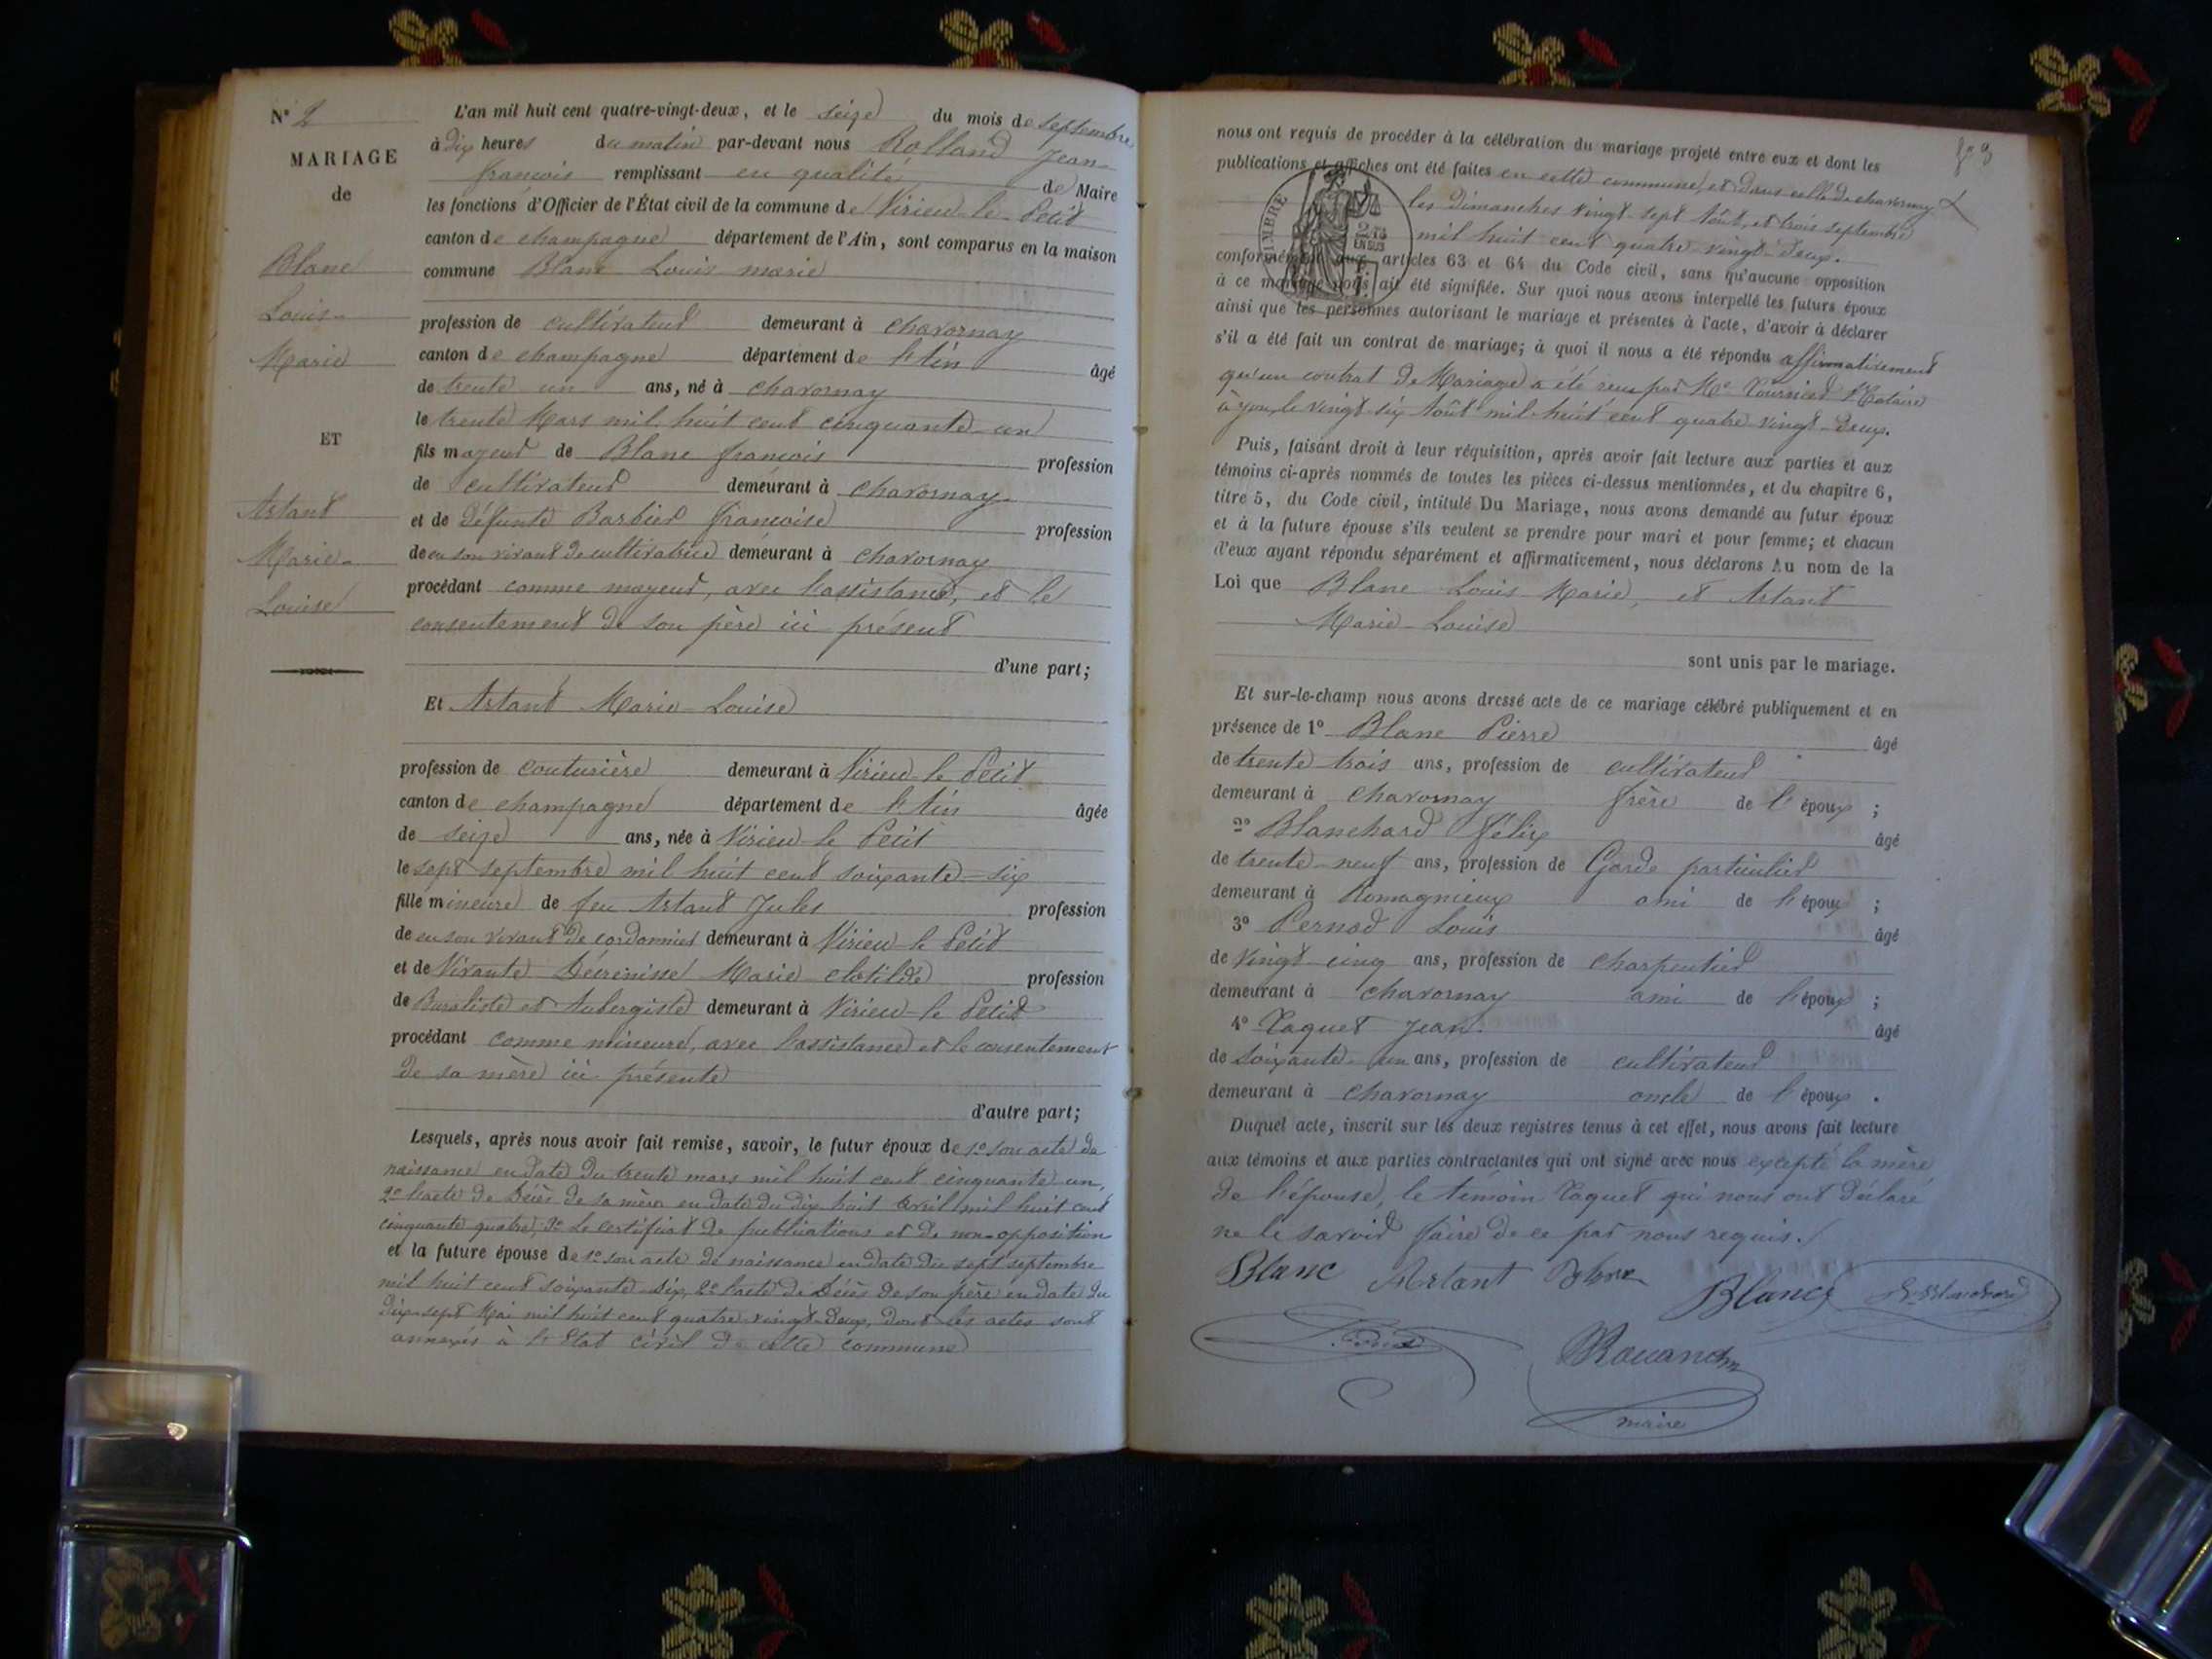 N° 2
MARIAGE
de
Blanc
Louis
Marie
ET
Artant
Marie-
Louise
L'an mil huit cent quatre-vingt-deux, et le seize du mois de septembre
à dix heures du matin par-devant nous Rolland Jean-
françois remplissant en qualité de Maire
les fonctions d'Officier de l'État civil de la commune de Virieu-le-Petit
canton de champagne département de l'Ain, sont comparus en la maison
commune Blanc Louis marie
profession de cultivateur demeurant à chavornay
canton de champagne département de l'Ain âgé
de trente un ans, né à chavornay
le trente Mars mil huit cent cinquante-un
fils majeur de Blanc françois profession
de cultivateur demeurant à chavornay
et de défunte Barbier françoise profession
de en son vivant de cultivatrice demeurant à chavornay
procédant comme majeur, avec l'assistance, et le
consentement de son père ici présent
d'une part;
Et Artant Marie-Louise
profession de couturière demeurant à Virieu-le-Petit
canton de champagne département de l'Ain âgée
de seize ans, née à Virieu-le-Petit
le sept septembre mil huit cent soixante-six
fille mineure de feu Artant Jules profession
de en son vivant de cordonnier demeurant à Virieu-le-Petit
et de Vivante Décrenisse Marie clotilde profession
de Buraliste et Aubergiste demeurant à Virieu-le-Petit
procédant comme mineure, avec l'assistance et le consentement
de sa mère ici présente
d'autre part;
Lesquels, après nous avoir fait remise, savoir, le futur époux de 1° son acte de
naissance en date du trente mars mil huit cent cinquante un,
2° l'acte de Décès de sa mère en date du dix huit avril mil huit cent
cinquante quatre, 3° Le certificat de publications et de non-opposition
et la future épouse de 1° son acte de naissance en date du sept septembre
mil huit cent soixante-six, 2° l'acte de Décès de son père en date du
dix-sept Mai mil huit cent quatre vingt-deux, dont les actes sont
annexés à l'Etat civil de cette commune
nous ont requis de procéder à la célébration du mariage projeté entre eux et dont les
publications et affiches ont été faites en cette commune, et dans celle de chavornay
les dimanches vingt-sept Août, et trois septembre
mil huit cent quatre-vingt-deux.
TIMBRE
conformément aux articles 63 et 64 du Code civil, sans qu'aucune opposition
à ce mariage nous ait été signifiée. Sur quoi nous avons interpellé les futurs époux
ainsi que les personnes autorisant le mariage et présentes à l'acte, d'avoir à déclarer
s'il a été fait un contrat de mariage; à quoi il nous a été répondu affirmativement
qu'un contrat de Mariage a été reçu par Me Notaire
le vingt-six Août mil huit cent quatre vingt-deux.
Puis, faisant droit à leur réquisition, après avoir fait lecture aux parties et aux
témoins ci-après nommés de toutes les pièces ci-dessus mentionnées, et du chapitre 6,
titre 5, du Code civil, intitulé Du Mariage, nous avons demandé au futur époux
et à la future épouse s'ils veulent se prendre pour mari et pour femme; et chacun
d'eux ayant répondu séparément et affirmativement, nous déclarons Au nom de la
Loi que Blanc Louis Marie, et Artant
Marie-Louise
sont unis par le mariage.
Et sur-le-champ nous avons dressé acte de ce mariage célébré publiquement et en
présence de 1° Blanc Pierre âgé
de trente trois ans, profession de cultivateur
demeurant à chavornay frère de l'époux ;
2° Blanchard félix âgé
de trente-neuf ans, profession de Garde particulier
demeurant à Romagnieux ami de l'époux ;
3° Pernod Louis âgé
de vingt cinq ans, profession de charpentier
demeurant à chavornay ami de l'époux ;
4° Taquet Jean âgé
de soixante-un ans, profession de cultivateur
demeurant à chavornay oncle de l'époux .
Duquel acte, inscrit sur les deux registres tenus à cet effet, nous avons fait lecture
aux témoins et aux parties contractantes qui ont signé avec nous excepté la mère
de l'épouse, le témoin Taquet qui nous ont déclaré
ne le savoir faire de ce par nous requis.
Blanc Artant Blanc
maire